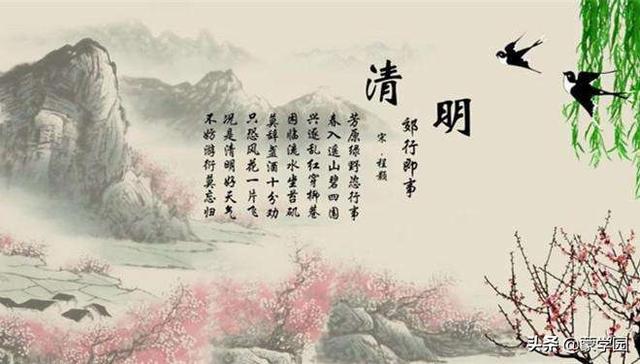 清明
郊行即事
宋·程颢
芳原绿野恣行事
春入遥山碧四围
兴逐乱红穿柳巷
因临流水坐苔矶
莫辞盏酒十分劝
只恐风花一片飞
况是清明好天气
不好游衍莫忘归
头条 @蒙学园